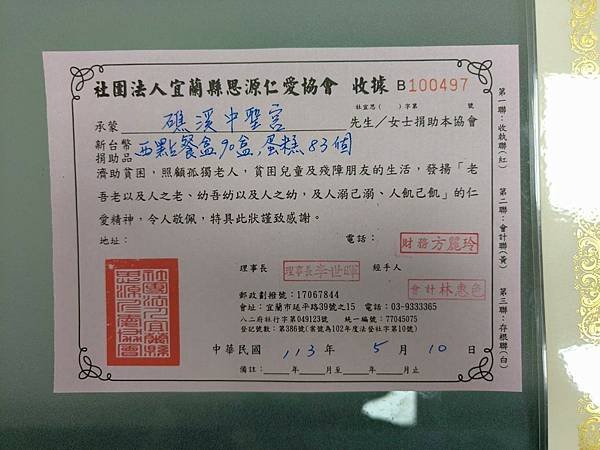 社團法人宜蘭縣思源仁愛協會 收據 B100497
社宜思( )字第 號
承蒙 礁溪中聖宮 先生/女士捐助本協會
新台幣
捐助品 西點餐盒90盒,蛋糕83個
濟助貧困,照顧孤獨老人,貧困兒童及殘障朋友的生活,發揚「老
吾老以及人之老、幼吾幼以及人之幼,及人溺己溺、人飢己飢」的仁
愛精神,令人敬佩,特具此狀謹致感謝。
地址: 電話:
財務方麗玲
理事長 理事長李世暉 經手人
會計林惠色
郵政劃撥號:17067844
會址:宜蘭市延平路39號之15 電話:03-9333365
八二府社行字第049123號 統一編號:77045075
登記號數:第386號(案號為102年度法登社字第10號)
中華民國 113 年 5 月 10 日
備註: 年 月至 年 月止
社團法人宜蘭縣思源仁愛協會
第一聯:收執聯(紅) 第二聯:會計聯(黃) 第三聯:存根聯(白)